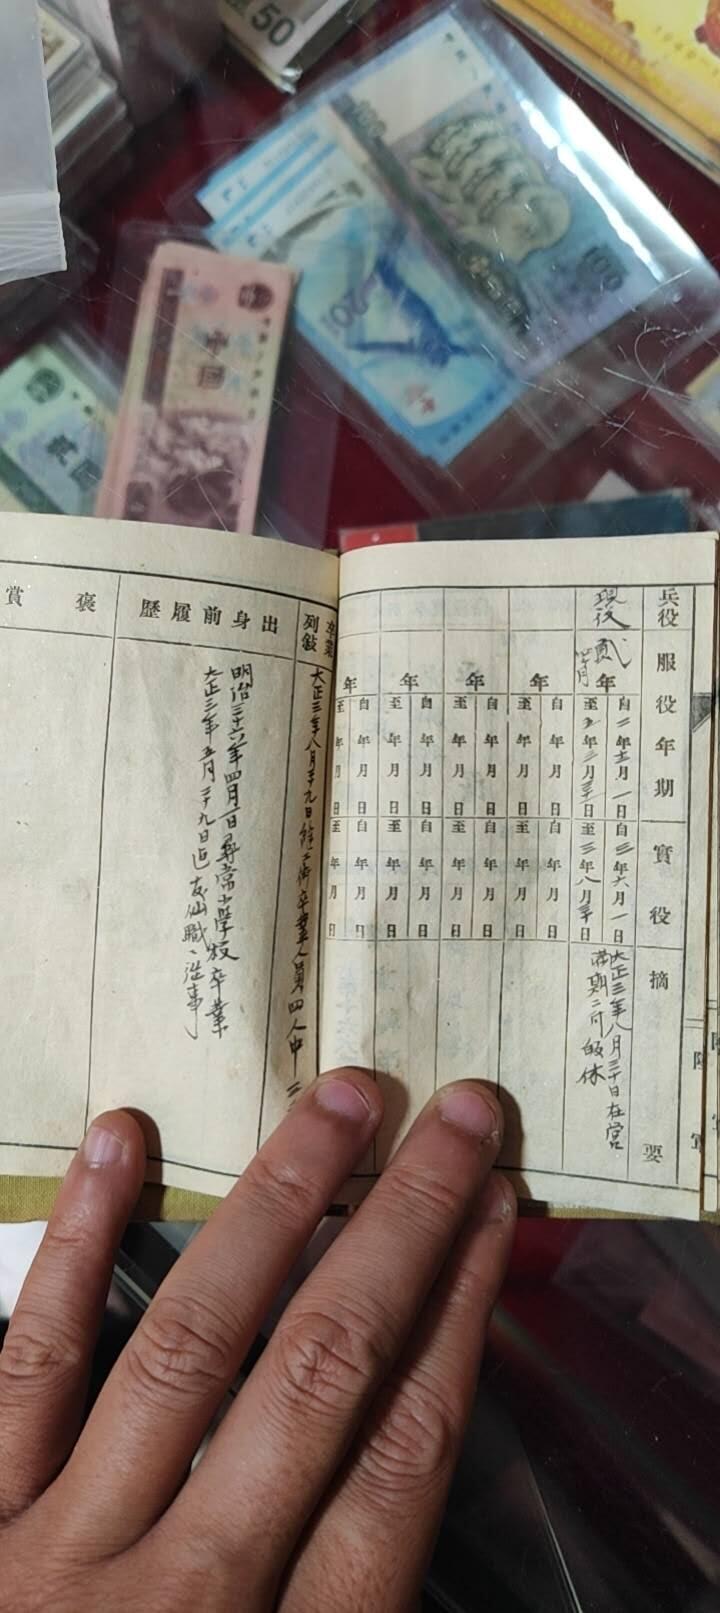 50
100
100
20
中国
貳圆
兵役
服役年期
實役
摘要
現役
貳年
自二年十二月一日
自三年六月一日
至三年八月三十日
大正三年八月三十日在営
満期ニ付帰休
年
自 年 月 日
至 年 月 日
自 年 月 日
至 年 月 日
年
自 年 月 日
至 年 月 日
自 年 月 日
至 年 月 日
年
自 年 月 日
至 年 月 日
自 年 月 日
至 年 月 日
年
自 年 月 日
至 年 月 日
自 年 月 日
至 年 月 日
卒業
列敍
大正三年八月二十九日銃工術卒業人員四人中
出身前履歷
明治三十六年四月一日尋常小學校卒業
大正三年五月二十九日迄
職ニ従事
褒賞